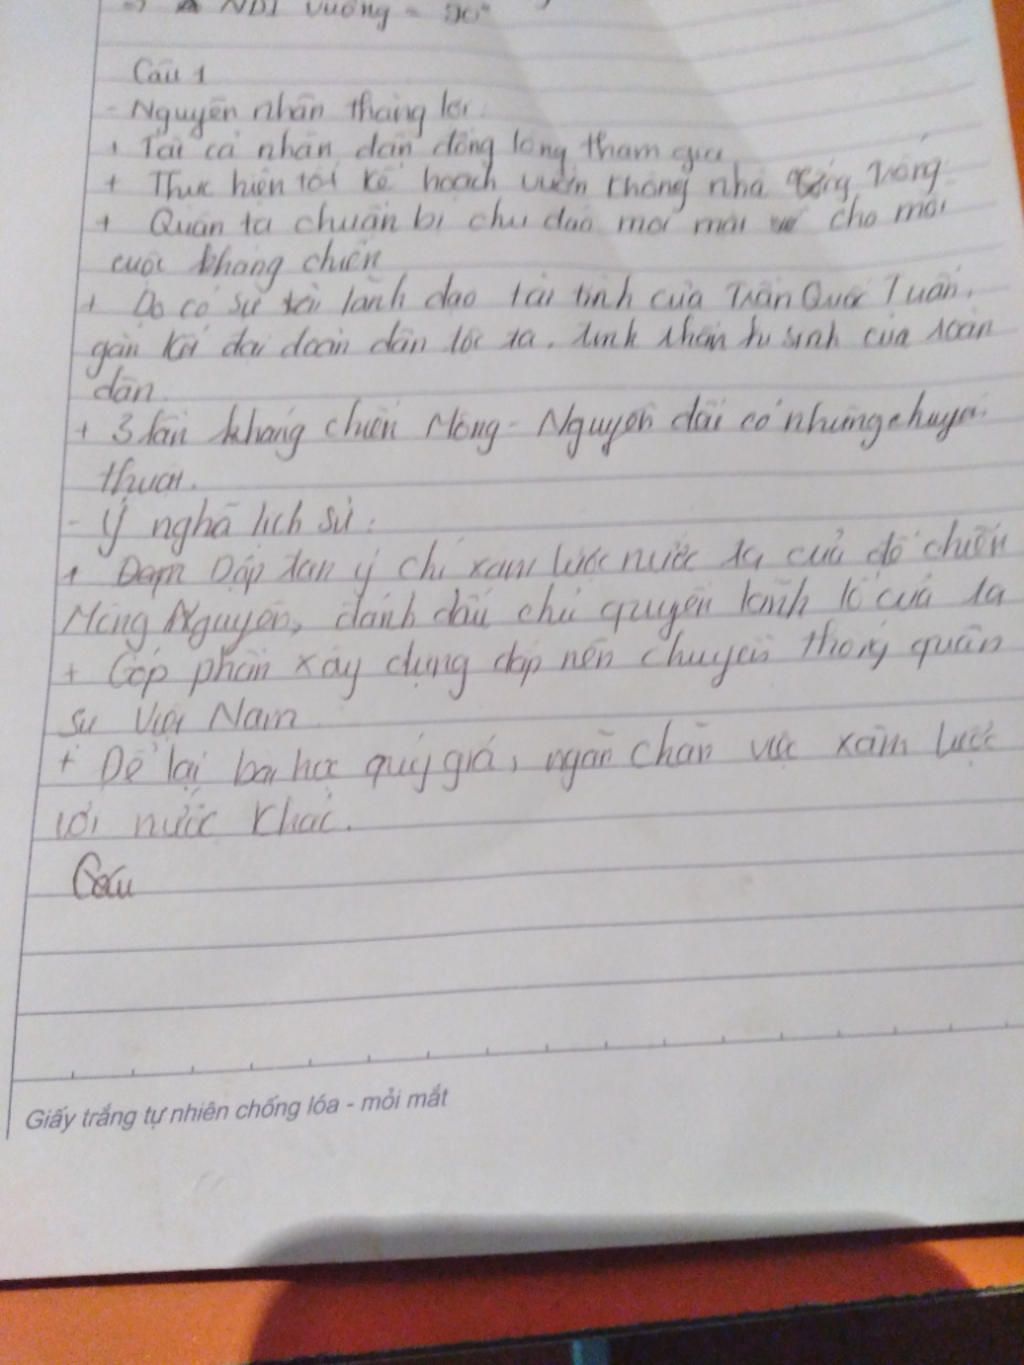 NDI vuông = 90°
Câu 1
- Nguyên nhân thắng lợi
+ Tất cả nhân dân đồng lòng tham gia
+ Thực hiện tốt kế hoạch vườn không nhà trống
+ Quân ta chuẩn bị chu đáo mọi mặt cho mỗi
cuộc kháng chiến
+ Do có sự lãnh đạo tài tình của Trần Quốc Tuấn,
gắn kết đại đoàn dân tộc ta, tinh thần hi sinh của toàn
dân
+ 3 lần kháng chiến Mông - Nguyên đều có những
thuật.
- Ý nghã lịch sử:
+ Dập tan ý chí xâm lược nước ta của đế chiến
Mông Nguyên, đánh dấu chủ quyền lãnh tổ của ta
+ Góp phần xây dựng đắp nên chuyền thống quân
sự Việt Nam
+ Để lại bài học quý giá, ngăn chặn việc xâm lược
với nước khác.
Câu
Giấy trắng tự nhiên chống lóa - mỏi mắt